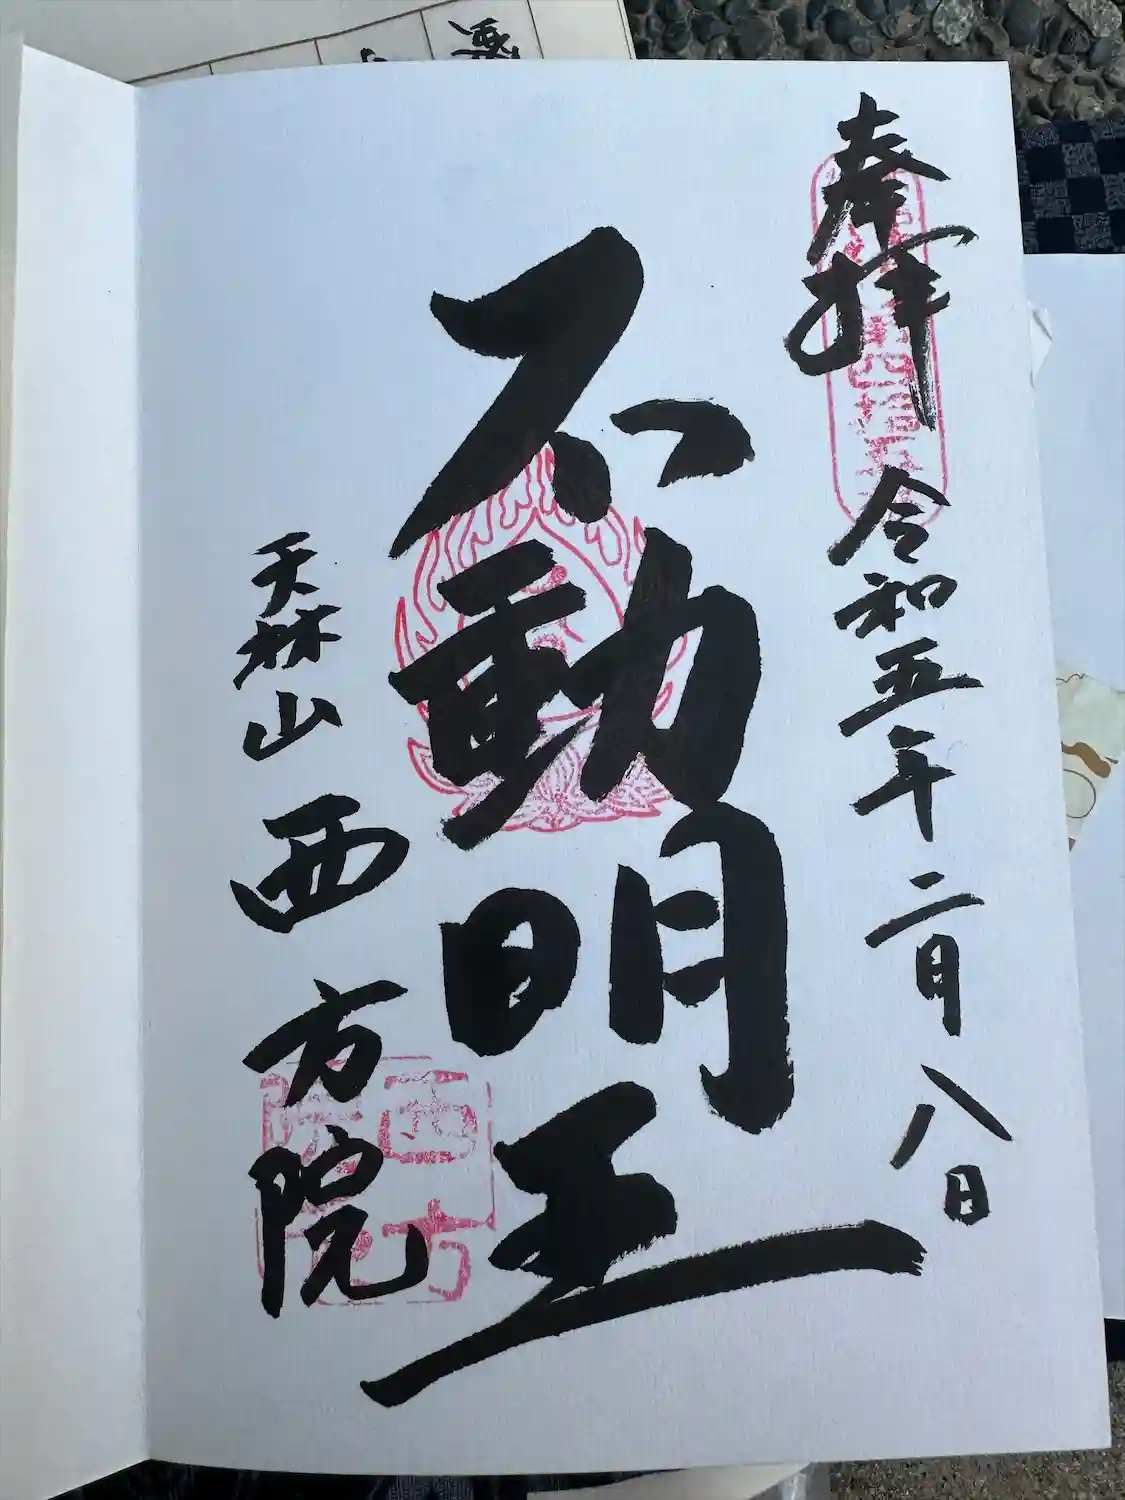 奉拝
令和五年二月八日
不動明王
天林山
西方院
西方院